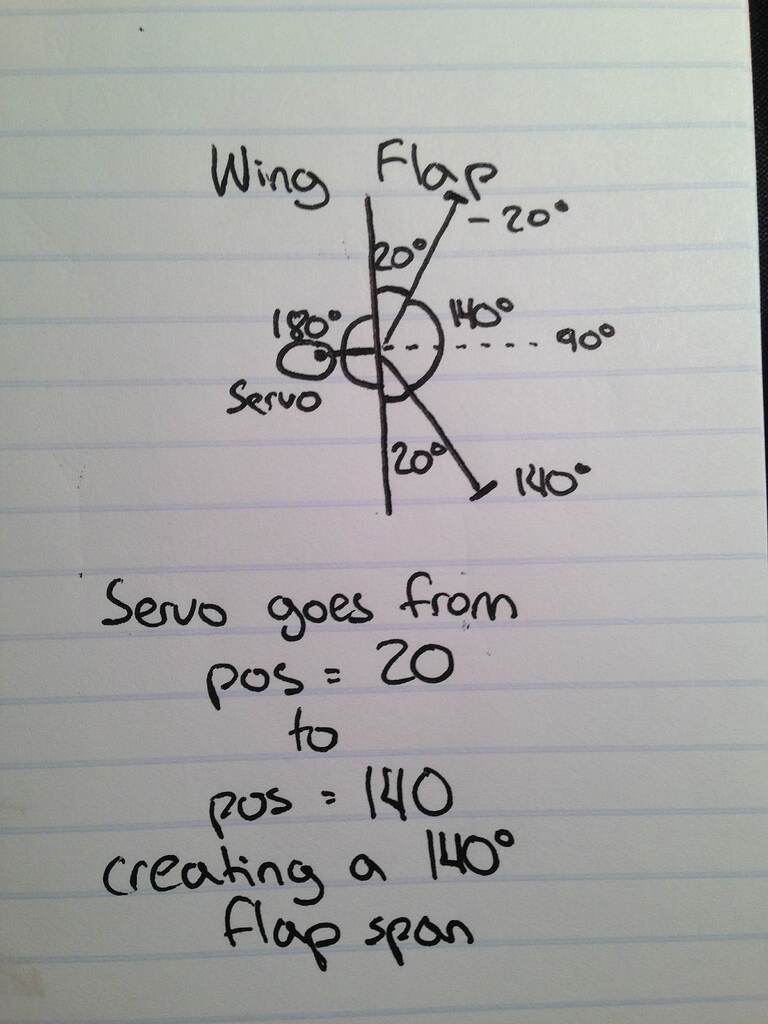 Wing Flap
- 20°
20°
180°
140°
90°
Servo
20°
140°
Servo goes from
pos = 20
to
pos = 140
creating a 140°
flap span